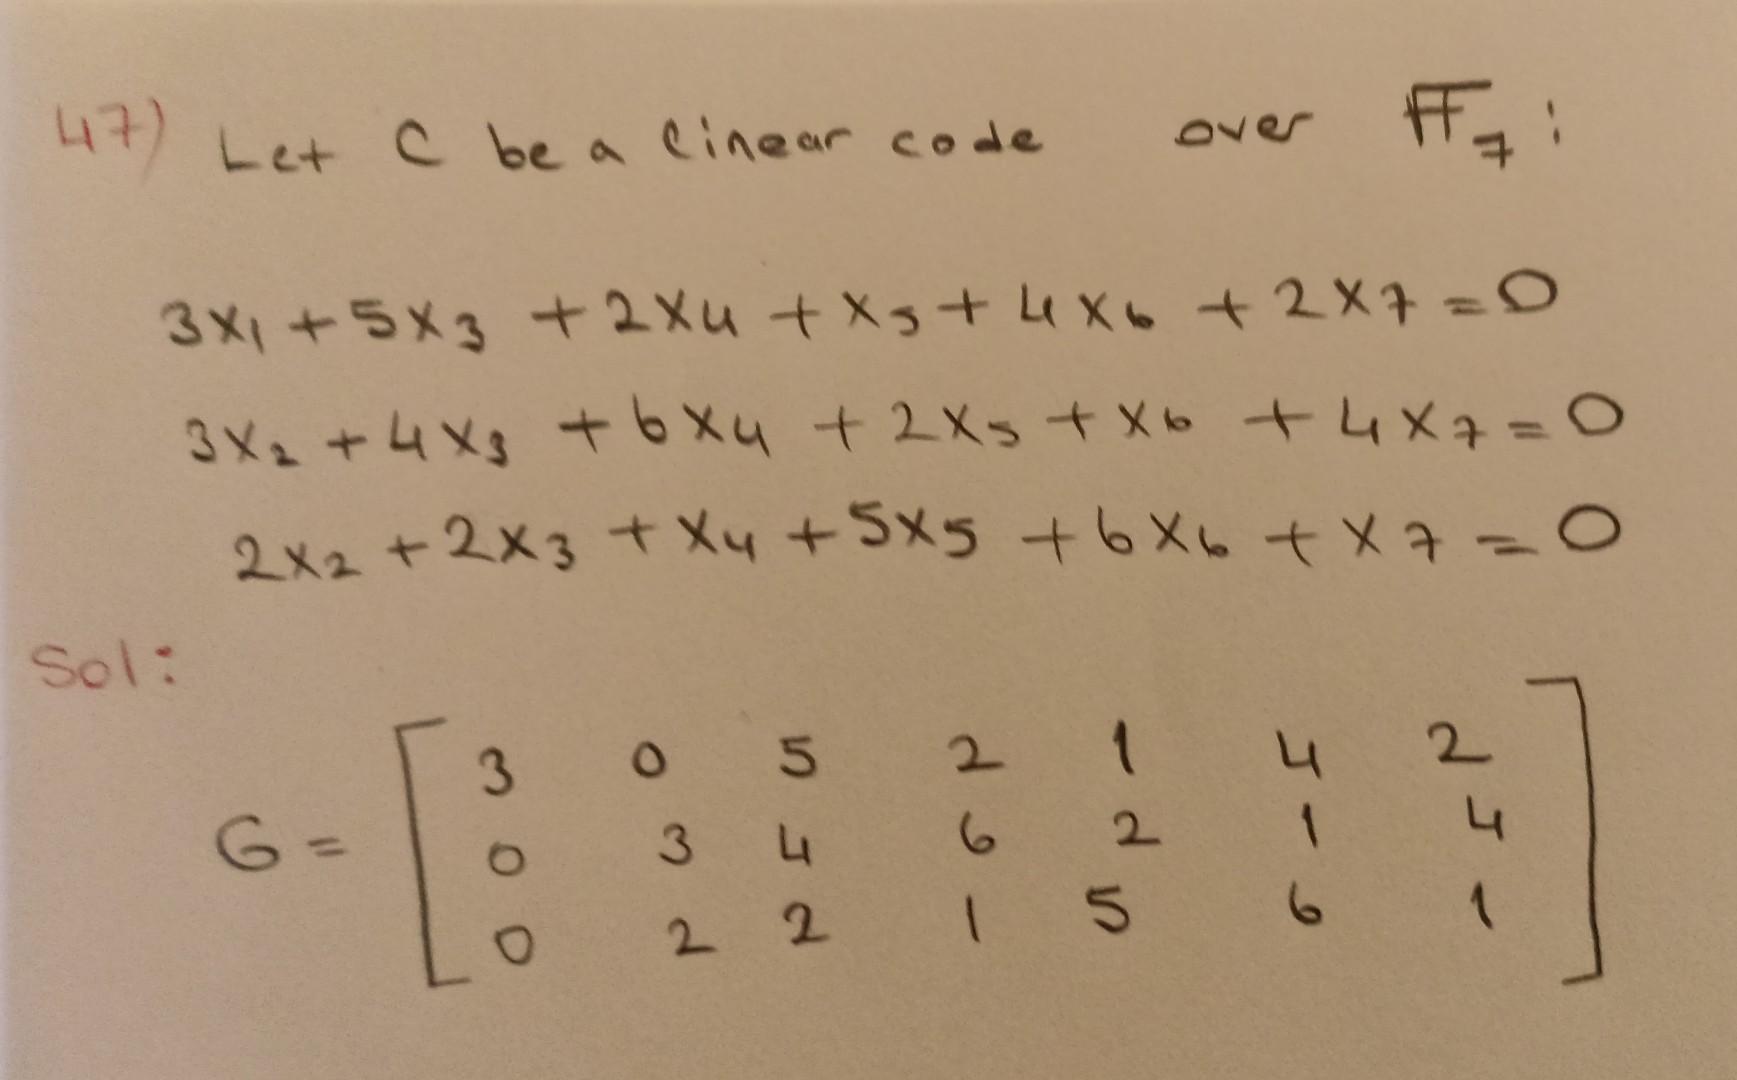 47) Let C be a linear code over 𝔽₇:
3x₁ + 5x₃ + 2x₄ + x₅ + 4x₆ + 2x₇ = 0
3x₂ + 4x₃ + 6x₄ + 2x₅ + x₆ + 4x₇ = 0
2x₂ + 2x₃ + x₄ + 5x₅ + 6x₆ + x₇ = 0
Sol:
3 0 5 2 1 4 2
G = 0 3 4 6 2 1 4
0 2 2 1 5 6 1